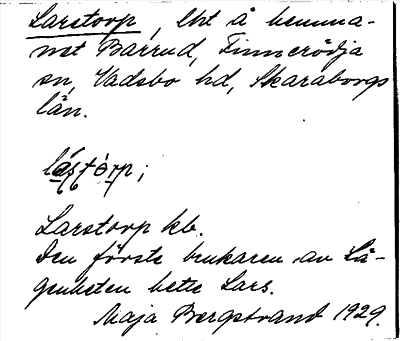 Larstorp, lht å hemma-
net Barrud, Finnerödja
sn, Vadsbo hd, Skaraborgs
län.
lástòrp;
Larstorp kb.
Den förste brukaren av Lä-
genheten hette Lars.
Maja Bergstrand 1929.